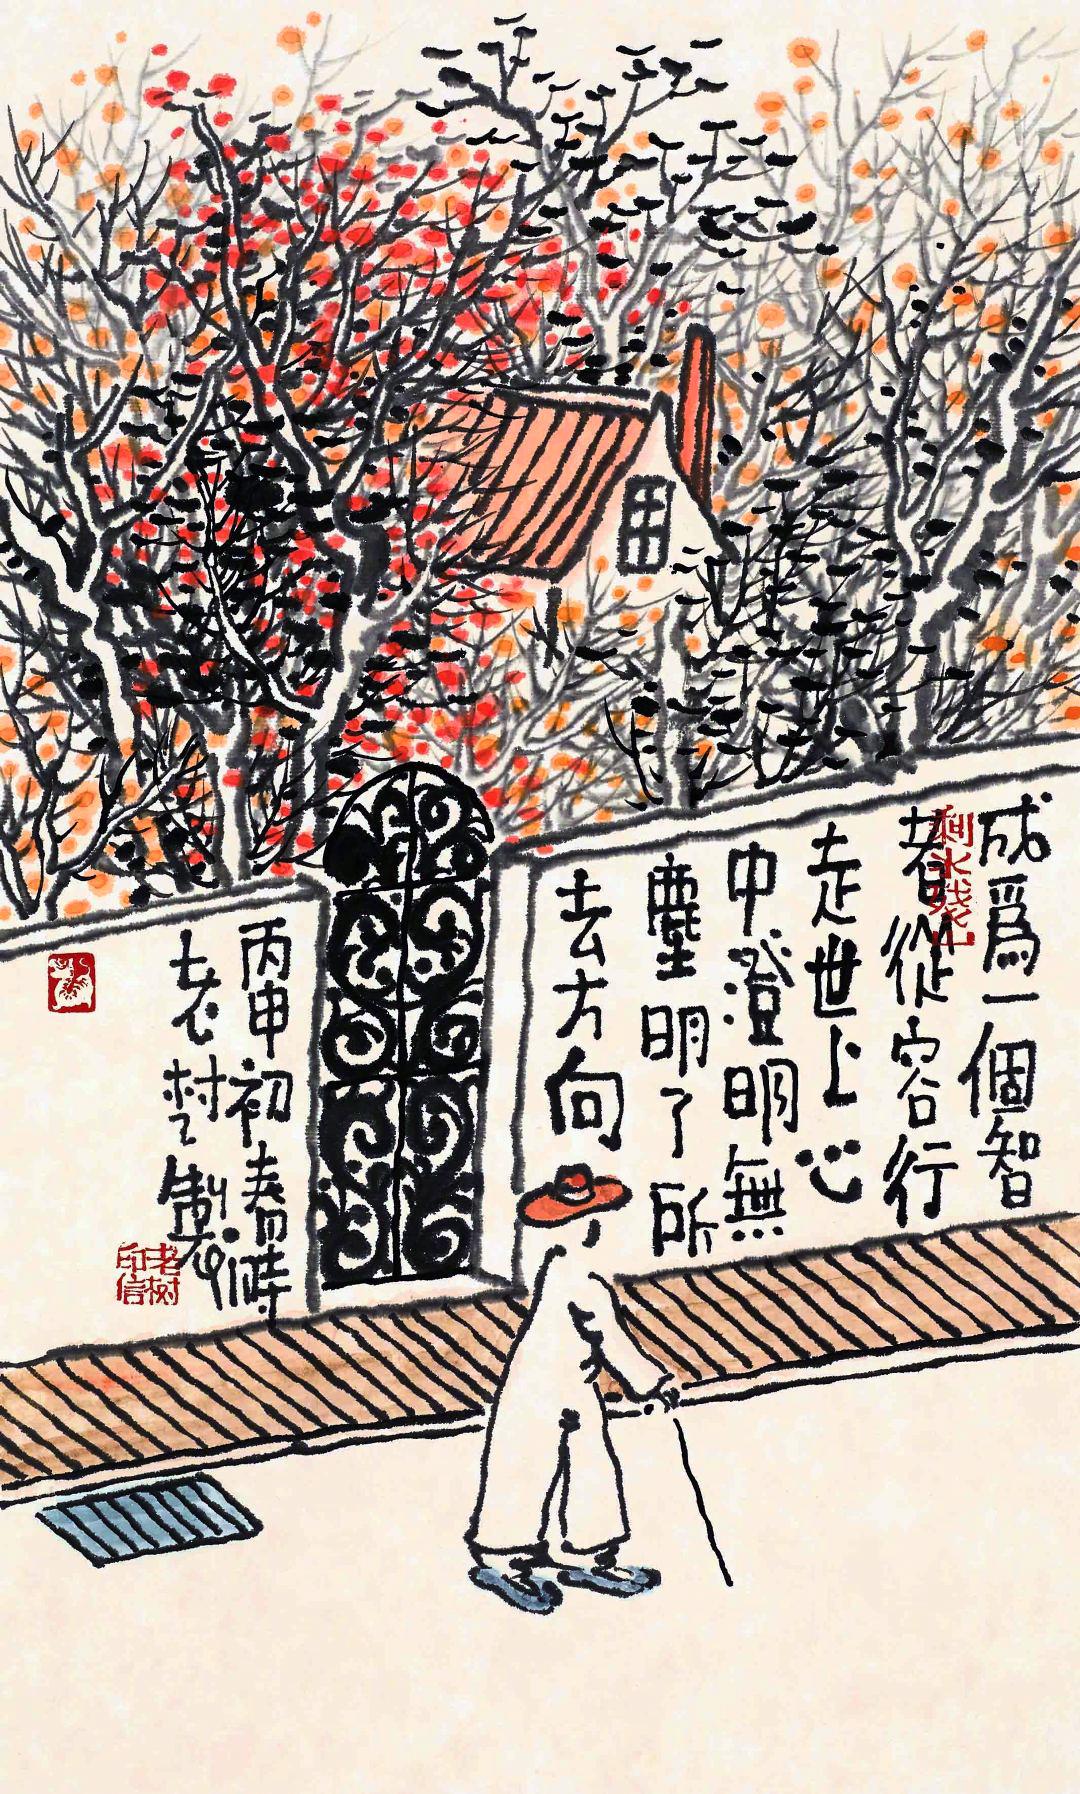 成爲一個智
者從容行
走世上心
中澄明無
塵明了所
去方向
剩水殘山
丙申初春時
老樹製
老树印信